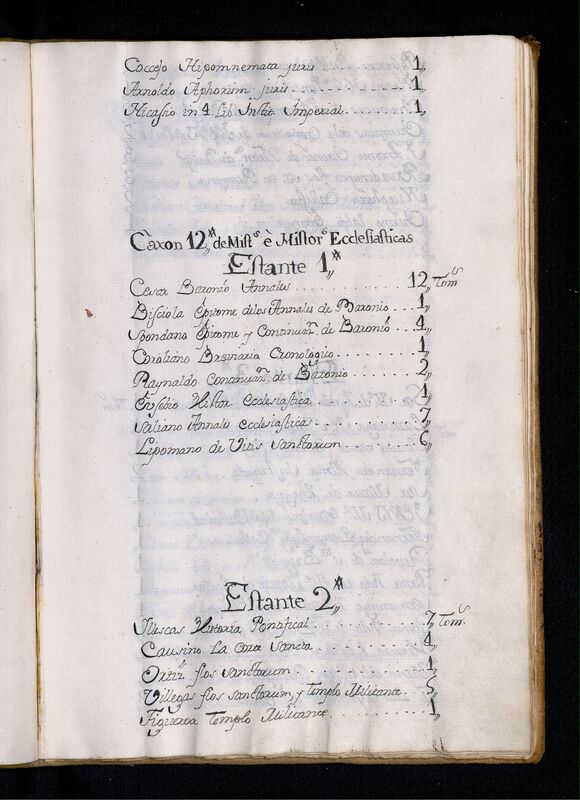 Coccejo Hipomnemata juris ........ 1„
Arnoldo Aphorism juris ........ 1„
Nicasio in 4 Lib Instit Imperial ........ 1„
Caxon 12„ª de Hist.s è Histors Ecclesiasticas
Estante 1„ª
Cesar Baronio Annales ........ 12„ Toms
Bisciola Epitome delos Annales de Baronio ... 1„
Spondano Epitome y Continuan. de Baronio ... 4„
Coroliano Breviario Cronologico ........ 1„
Raynaldo Continuan. de Baronio ........ 2„
Eusebio Histor Ecclesiastica ........ 1„
Saliano Annales ecclesiasticas ........ 7„
Lipomano de Vitis Sanctorum ........ 6„
Estante 2„ª
Yllescas Historia Pontifical ........ 7„ Toms
Causino La Corte Santa ........ 4„
Ortiz flos sanctorum ........ 1„
Villegas flos sanctorum, y Templo Militante ... 5„
Figueroa Templo Militante ........ 1„